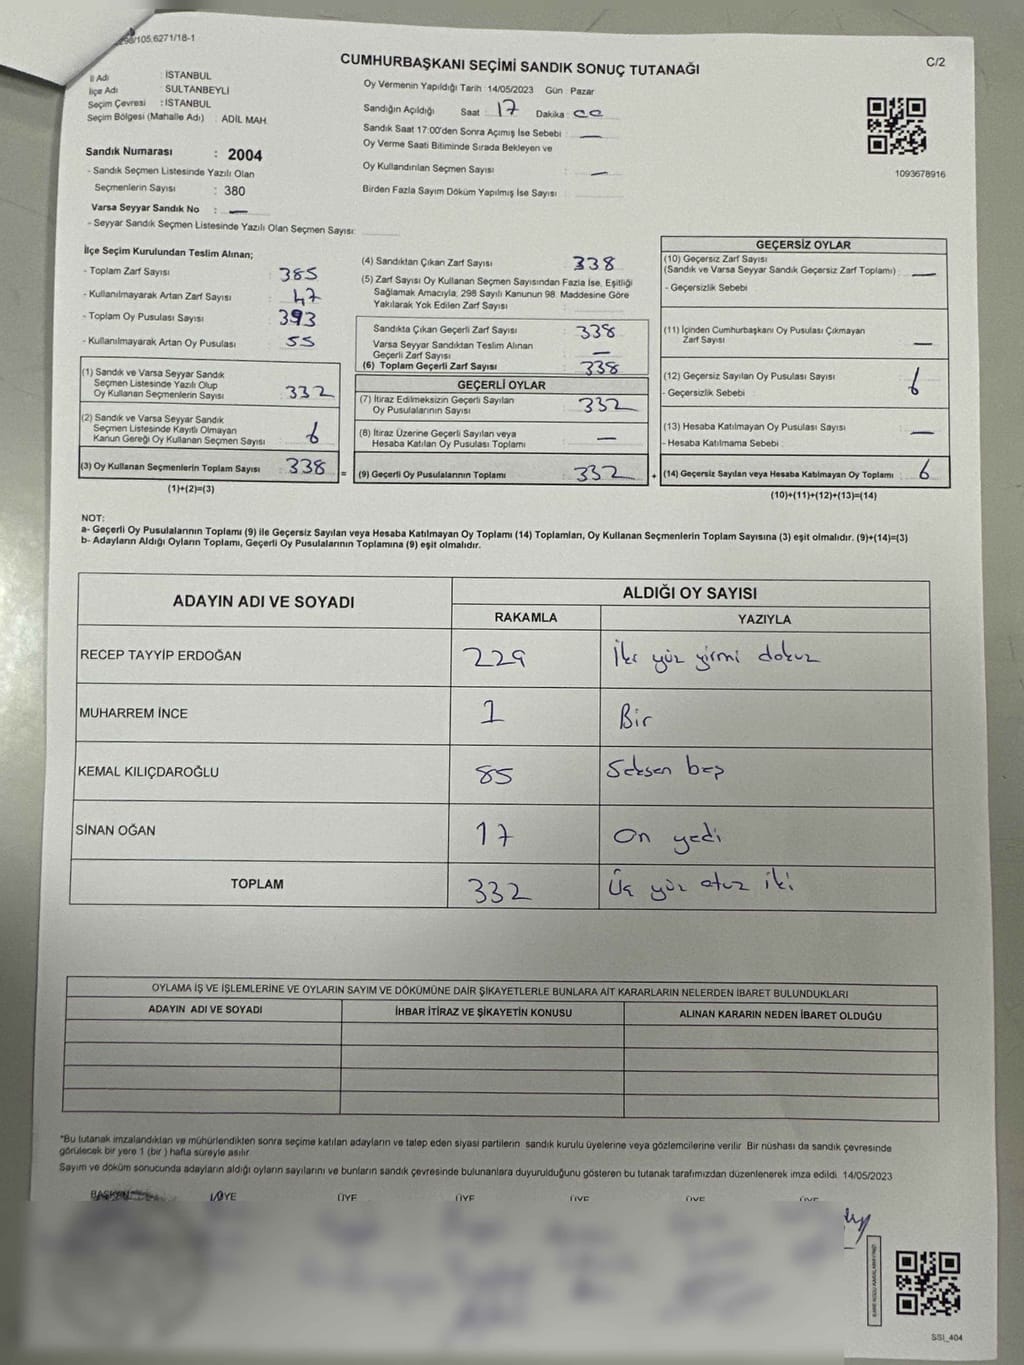 298/105:6271/18-1
C/2
CUMHURBAŞKANI SEÇİMİ SANDIK SONUÇ TUTANAĞI
İl Adı : İSTANBUL
İlçe Adı : SULTANBEYLİ
Seçim Çevresi : İSTANBUL
Seçim Bölgesi (Mahalle Adı) : ADİL MAH.
Oy Vermenin Yapıldığı Tarih : 14/05/2023 Gün : Pazar
Sandığın Açıldığı Saat : 17 Dakika : 00
Sandık Saat 17:00'den Sonra Açımış İse Sebebi : —
Oy Verme Saati Bitiminde Sırada Bekleyen ve
Oy Kullandırılan Seçmen Sayısı : —
Birden Fazla Sayım Döküm Yapılmış İse Sayısı :
1093678916
Sandık Numarası : 2004
- Sandık Seçmen Listesinde Yazılı Olan
Seçmenlerin Sayısı : 380
Varsa Seyyar Sandık No : —
- Seyyar Sandık Seçmen Listesinde Yazılı Olan Seçmen Sayısı:
İlçe Seçim Kurulundan Teslim Alınan;
- Toplam Zarf Sayısı : 385
- Kullanılmayarak Artan Zarf Sayısı : 47
- Toplam Oy Pusulası Sayısı : 393
- Kullanılmayarak Artan Oy Pusulası : 55
(1) Sandık ve Varsa Seyyar Sandık
Seçmen Listesinde Yazılı Olup
Oy Kullanan Seçmenlerin Sayısı : 332
(2) Sandık ve Varsa Seyyar Sandık
Seçmen Listesinde Kayıtlı Olmayan
Kanun Gereği Oy Kullanan Seçmen Sayısı : 6
(3) Oy Kullanan Seçmenlerin Toplam Sayısı : 338
(1)+(2)=(3)
=
(4) Sandıktan Çıkan Zarf Sayısı : 338
(5) Zarf Sayısı Oy Kullanan Seçmen Sayısından Fazla İse, Eşitliği
Sağlamak Amacıyla, 298 Sayılı Kanunun 98. Maddesine Göre
Yakılarak Yok Edilen Zarf Sayısı :
Sandıkta Çıkan Geçerli Zarf Sayısı : 338
Varsa Seyyar Sandıktan Teslim Alınan
Geçerli Zarf Sayısı : —
(6) Toplam Geçerli Zarf Sayısı : 338
GEÇERLİ OYLAR
(7) İtiraz Edilmeksizin Geçerli Sayılan
Oy Pusulalarının Sayısı : 332
(8) İtiraz Üzerine Geçerli Sayılan veya
Hesaba Katılan Oy Pusulası Toplamı : —
(9) Geçerli Oy Pusulalarının Toplamı : 332
+
GEÇERSİZ OYLAR
(10) Geçersiz Zarf Sayısı
(Sandık ve Varsa Seyyar Sandık Geçersiz Zarf Toplamı) : —
- Geçersizlik Sebebi
(11) İçinden Cumhurbaşkanı Oy Pusulası Çıkmayan
Zarf Sayısı : —
(12) Geçersiz Sayılan Oy Pusulası Sayısı : 6
- Geçersizlik Sebebi
(13) Hesaba Katılmayan Oy Pusulası Sayısı : —
- Hesaba Katılmama Sebebi :
(14) Geçersiz Sayılan veya Hesaba Katılmayan Oy Toplamı : 6
(10)+(11)+(12)+(13)=(14)
NOT:
a- Geçerli Oy Pusulalarının Toplamı (9) ile Geçersiz Sayılan veya Hesaba Katılmayan Oy Toplamı (14) Toplamları, Oy Kullanan Seçmenlerin Toplam Sayısına (3) eşit olmalıdır. (9)+(14)=(3)
b- Adayların Aldığı Oyların Toplamı, Geçerli Oy Pusulalarının Toplamına (9) eşit olmalıdır.
ADAYIN ADI VE SOYADI ALDIĞI OY SAYISI
RAKAMLA YAZIYLA
RECEP TAYYİP ERDOĞAN 229 İki yüz yirmi dokuz
MUHARREM İNCE 1 Bir
KEMAL KILIÇDAROĞLU 85 Seksen beş
SİNAN OĞAN 17 On yedi
TOPLAM 332 Üç yüz otuz iki
OYLAMA İŞ VE İŞLEMLERİNE VE OYLARIN SAYIM VE DÖKÜMÜNE DAİR ŞİKAYETLERLE BUNLARA AİT KARARLARIN NELERDEN İBARET BULUNDUKLARI
ADAYIN ADI VE SOYADI İHBAR İTİRAZ VE ŞİKAYETİN KONUSU ALINAN KARARIN NEDEN İBARET OLDUĞU
*Bu tutanak imzalandıktan ve mühürlendikten sonra seçime katılan adayların ve talep eden siyasi partilerin sandık kurulu üyelerine veya gözlemcilerine verilir. Bir nüshası da sandık çevresinde
görülecek bir yere 1 (bir ) hafta süreyle asılır.
Sayım ve döküm sonucunda adayların aldığı oyların sayılarını ve bunların sandık çevresinde bulunanlara duyurulduğunu gösteren bu tutanak tarafımızdan düzenlenerek imza edildi. 14/05/2023
BAŞKAN ÜYE ÜYE ÜYE ÜYE ÜYE ÜYE
SSI_404